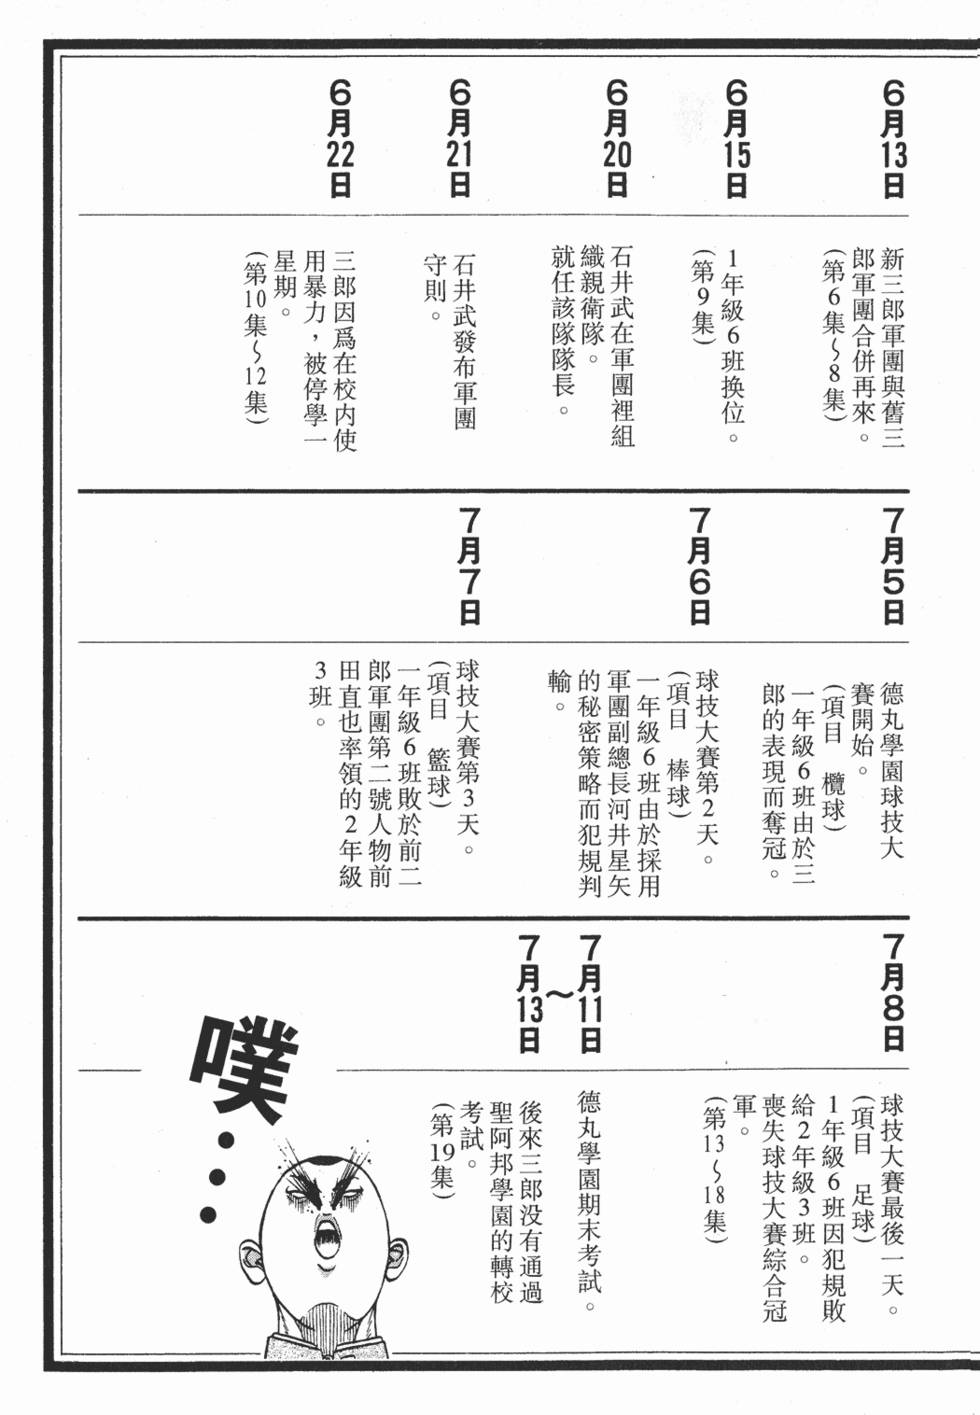 6月13日
新三郎軍團與舊三
郎軍團合併再來。
(第6集~8集)
6月15日
1年級6班換位。
(第9集)
6月20日
石井武在軍團裡組
織親衛隊。
就任該隊隊長。
6月21日
石井武發布軍團
守則。
6月22日
三郎因爲在校内使
用暴力，被停學一
星期。
(第10集~12集)
7月5日
德丸學園球技大
賽開始。
(項目 欖球)
一年級6班由於三
郎的表現而奪冠。
7月6日
球技大賽第2天。
(項目 棒球)
一年級6班由於採用
軍團副總長河井星矢
的秘密策略而犯規判
輸。
7月7日
球技大賽第3天。
(項目 籃球)
一年級6班敗於前二
郎軍團第二號人物前
田直也率領的2年級
3班。
7月8日
球技大賽最後一天。
(項目 足球)
1年級6班因犯規敗
給2年級3班。
喪失球技大賽綜合冠
軍。
(第13~18集)
7月11日~
7月13日
德丸學園期末考試。
後來三郎没有通過
聖阿邦學園的轉校
考試。
(第19集)
噗…